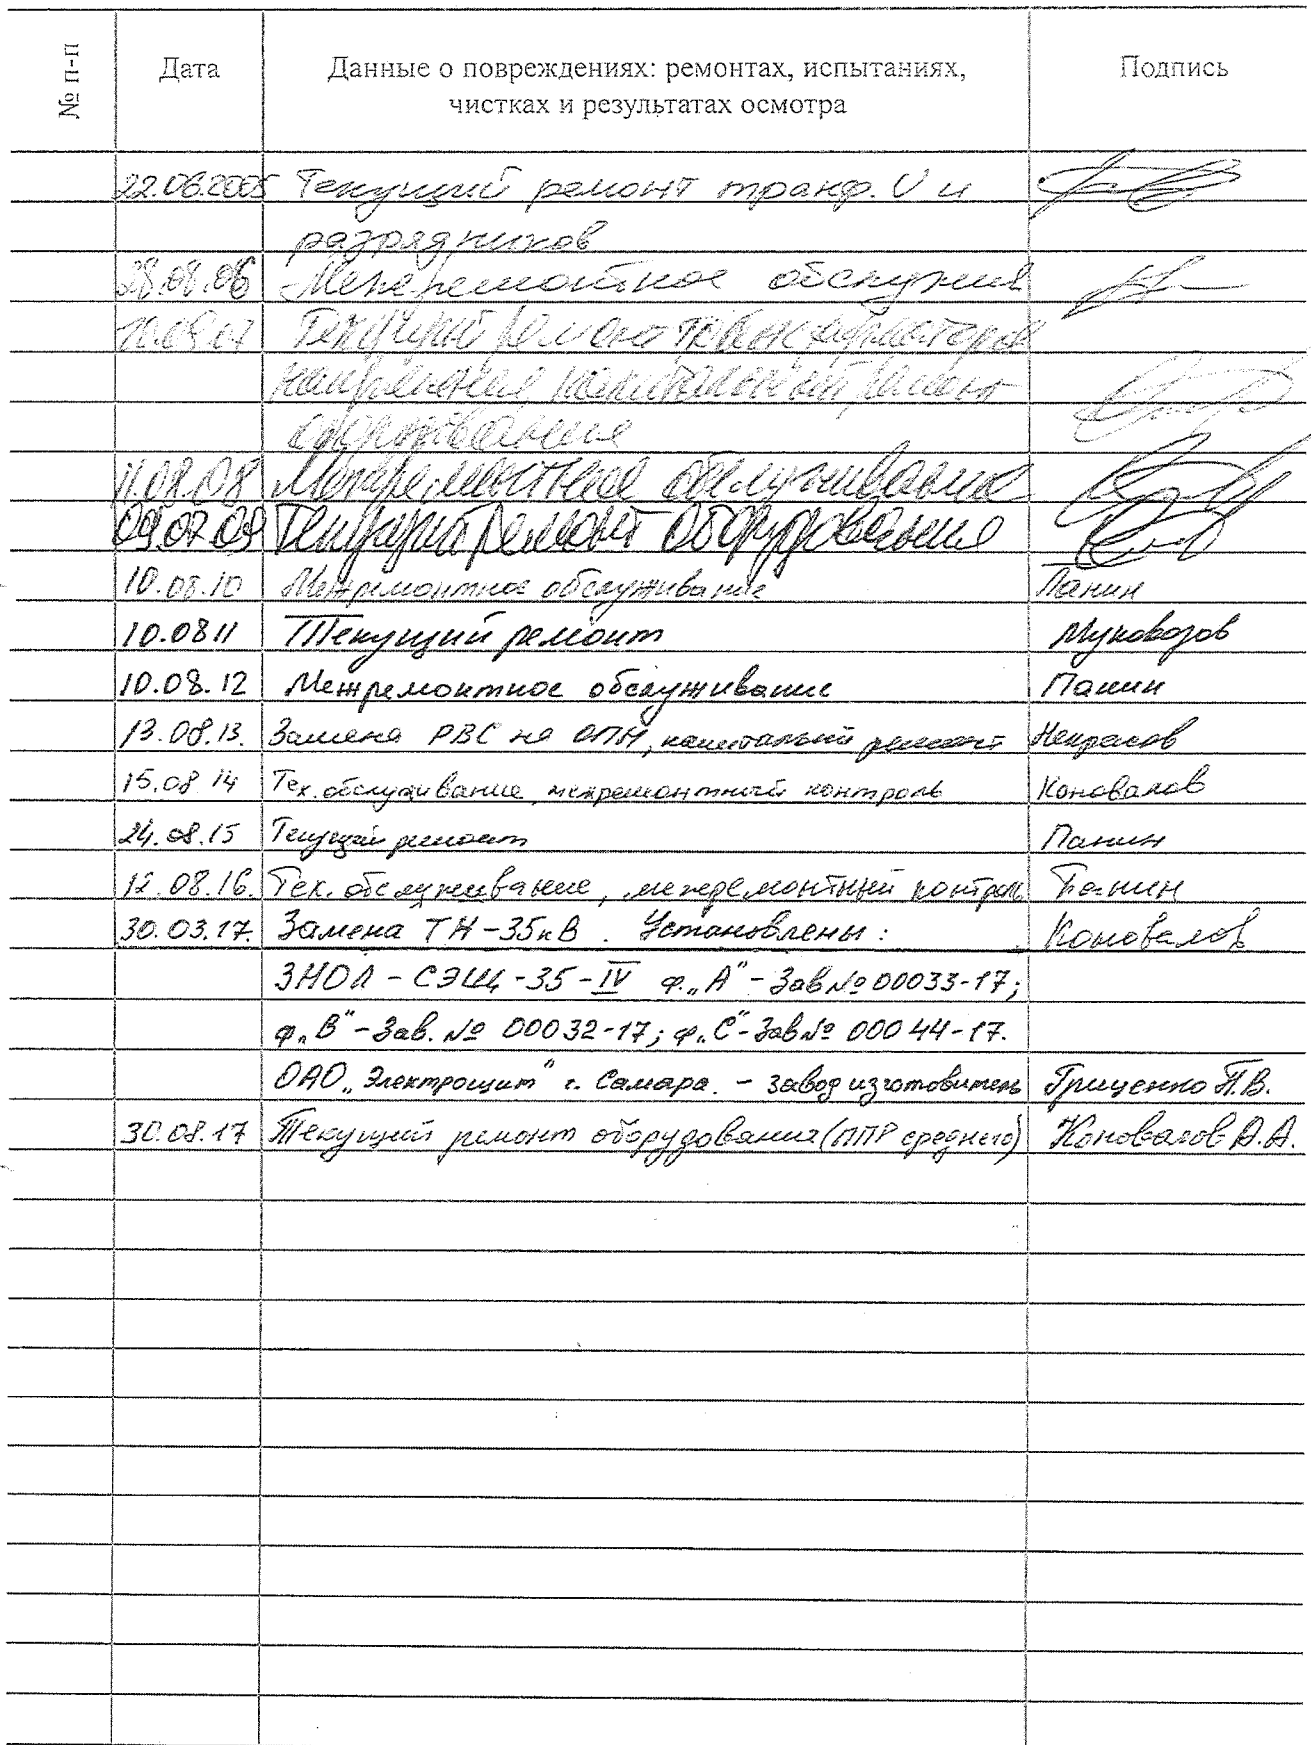 № п-п Дата Данные о повреждениях: ремонтах, испытаниях, Подпись
чистках и результатах осмотра
22.06.2005 Текущий ремонт транф. U и
разрядников
28.08.06 Межремонтное обслужив
10.09.07 Текущий ремонт трансформаторов
напряжения капитальный ремонт
оборудования
11.08.08 Межремонтное обслуживание
09.07.09 Текущий ремонт оборудования
10.08.10 Межремонтное обслуживание Панин
10.0811 Текущий ремонт Муковозов
10.08.12 Межремонтное обслуживание Панин
13.08.13. Замена РВС на ОПН, капитальный ремонт Некрасов
15.08 14 Тех. обслуживание, межремонтный контроль Коновалов
24.08.15 Текущий ремонт Панин
12.08.16. Тех. обслуживание, межремонтный контроль Панин
30.03.17. Замена ТН-35кВ. Установлены: Коновалов
ЗНОЛ-СЭЩ-35-IV ф.„А"-Зав№00033-17;
ф.„В"-Зав. № 00032-17; ф.„С"-Зав№ 00044-17.
ОАО „Электрощит" г. Самара. - завод изготовитель Гриценко П.В.
30.08.17 Текущий ремонт оборудования (ППР среднего) Коновалов А.А.